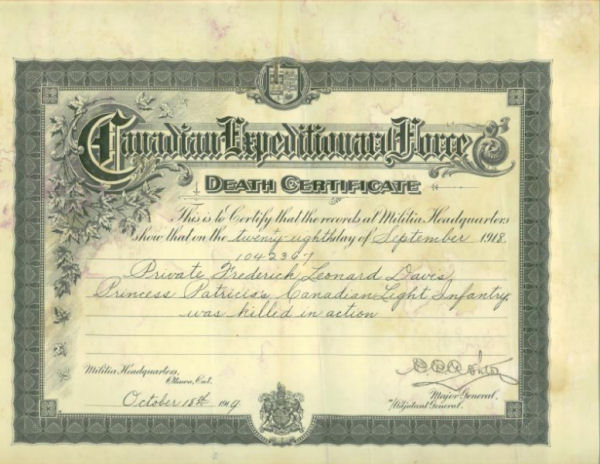 Canadian Expeditionary Force
DEATH CERTIFICATE
This is to Certify that the records at Militia Headquarters
show that on the twenty eighth day of September 1918.
1042367
Private Frederick Leonard Daves,
Princess Patricia's Canadian Light Infantry,
was killed in action
Militia Headquarters,
Ottawa, Ont.
October 18th 1919
Major General,
Adjutant General.